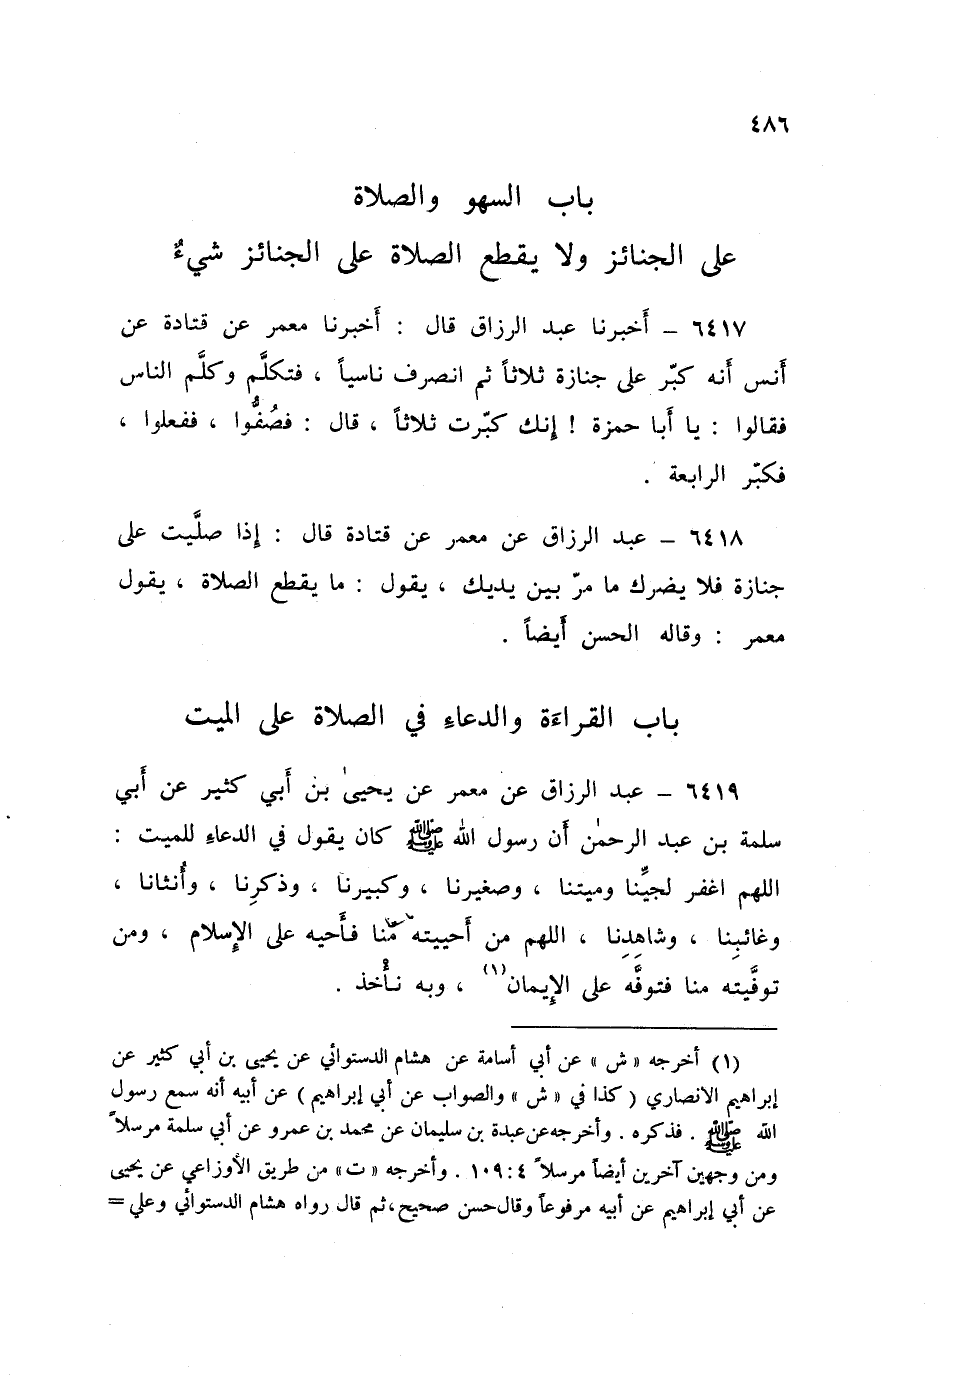 ٤٨٦
باب السهو والصلاة
على الجنائز ولا يقطع الصلاة على الجنائز شيءٌ
٦٤١٧ – أخبرنا عبد الرزاق قال : أخبرنا معمر عن قتادة عن
أنس أنه كبّر على جنازة ثلاثاً ثم انصرف ناسياً ، فتكلَّم وكلَّم الناس
فقالوا : يا أبا حمزة ! إنك كبّرت ثلاثاً ، قال : فصُفُّوا ، ففعلوا ،
فكبّر الرابعة .
٦٤١٨ – عبد الرزاق عن معمر عن قتادة قال : إذا صلَّيت على
جنازة فلا يضرك ما مرّ بين يديك ، يقول : ما يقطع الصلاة ، يقول
معمر : وقاله الحسن أيضاً .
باب القراءة والدعاءِ في الصلاة على الميت
٦٤١٩ – عبد الرزاق عن معمر عن يحيىٰ بن أبي كثير عن أبي
سلمة بن عبد الرحمٰن أن رسول الله ﷺ كان يقول في الدعاءِ للميت :
اللهم اغفر لحيِّنا وميتنا ، وصغيرنا ، وكبيرنا ، وذكرِنا ، وأُنثانا ،
وغائبِنا ، وشاهِدِنا ، اللهم من أحييته منّا فأَحيه على الإسلام ، ومن
توفَّيته منا فتوفَّه على الإيمان(١) ، وبه نأْخذ .
(١) أخرجه «ش» عن أبي أسامة عن هشام الدستوائي عن يحيى بن أبي كثير عن
إبراهيم الانصاري (كذا في «ش» والصواب عن أبي إبراهيم) عن أبيه أنه سمع رسول
الله ﷺ . فذكره . وأخرجه عن عبدة بن سليمان عن محمد بن عمرو عن أبي سلمة مرسلاً
ومن وجهين آخرين أيضاً مرسلاً ٤:١٠٩ . وأخرجه «ت» من طريق الأوزاعي عن يحيى
عن أبي إبراهيم عن أبيه مرفوعاً وقال حسن صحيح، ثم قال رواه هشام الدستوائي وعلي =